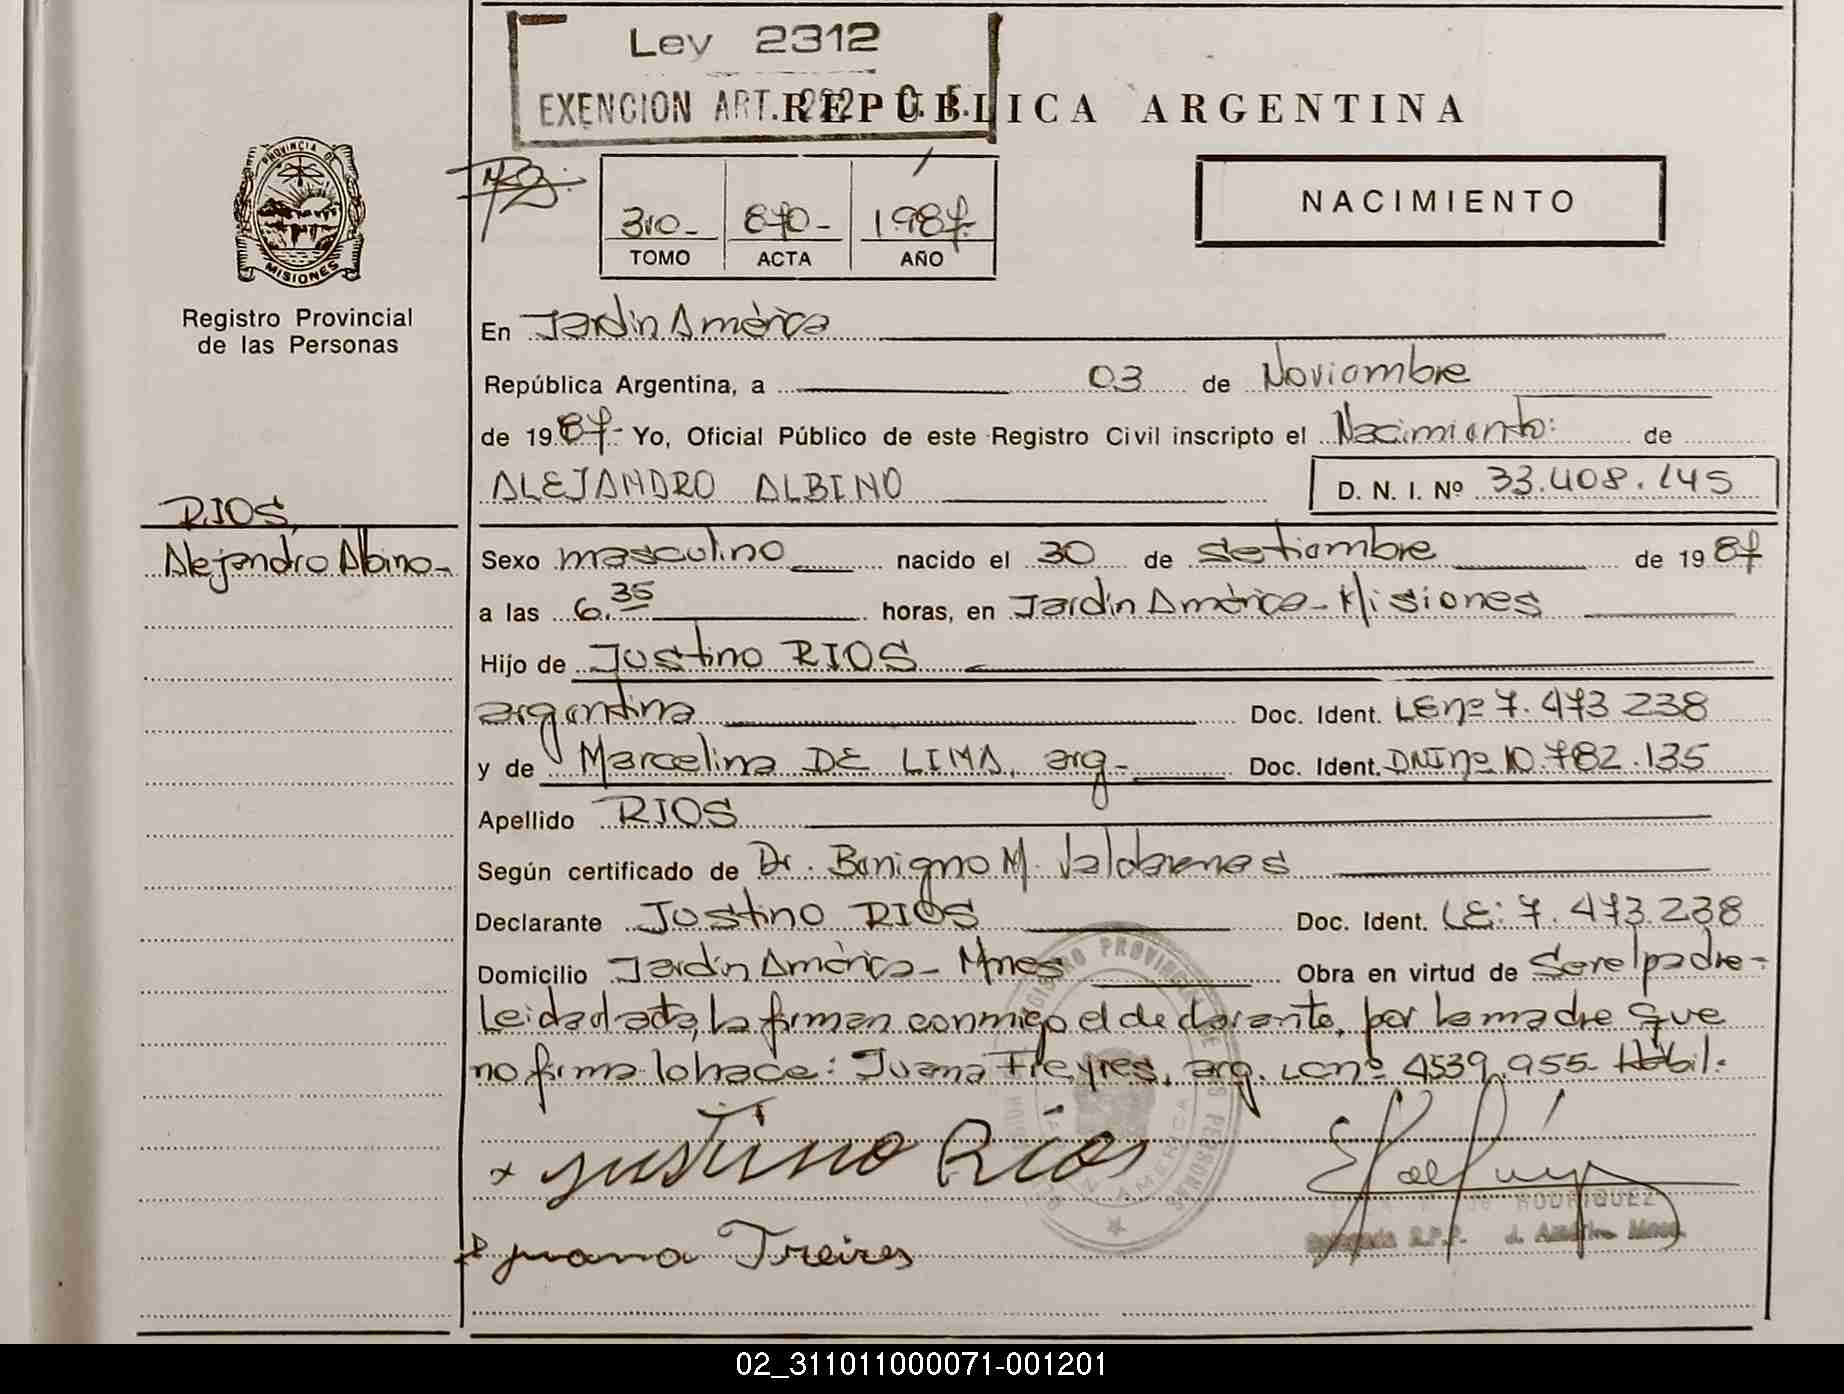 Ley 2312
EXENCION ART. 222 C. F.
REPUBLICA ARGENTINA
PROVINCIA DE MISIONES
Registro Provincial
de las Personas
3ro- 870- 1987-
TOMO ACTA AÑO
NACIMIENTO
En Jardín América
República Argentina, a 03 de Noviembre
de 1987- Yo, Oficial Público de este Registro Civil inscripto el Nacimiento: de
ALEJANDRO ALBINO D. N. I. Nº 33.408.145
RIOS,
Alejandro Albino-
Sexo masculino nacido el 30 de setiembre de 1987
a las 6.35 horas, en Jardín América- Misiones
Hijo de Justino RIOS
argentina Doc. Ident. LEnº 7.473 238
y de Marcelina DE LIMA, arg- Doc. Ident. DNInº 10.782.135
Apellido RIOS
Según certificado de Dr. Benigno M. Valdarenas
Declarante Justino RIOS Doc. Ident. LE: 7.473.238
Domicilio Jardín América- Mnes Obra en virtud de Ser el padre-
Leída el acta, la firman conmigo el declarante, por la madre que
no firma lo hace: Juana Freyres, arg. LCnº 4539.955- Hábil.
x Justino Ríos
RODRIGUEZ
Delegada R.P.P. J. América Mnes.
x Juana Treires
02_311011000071-001201